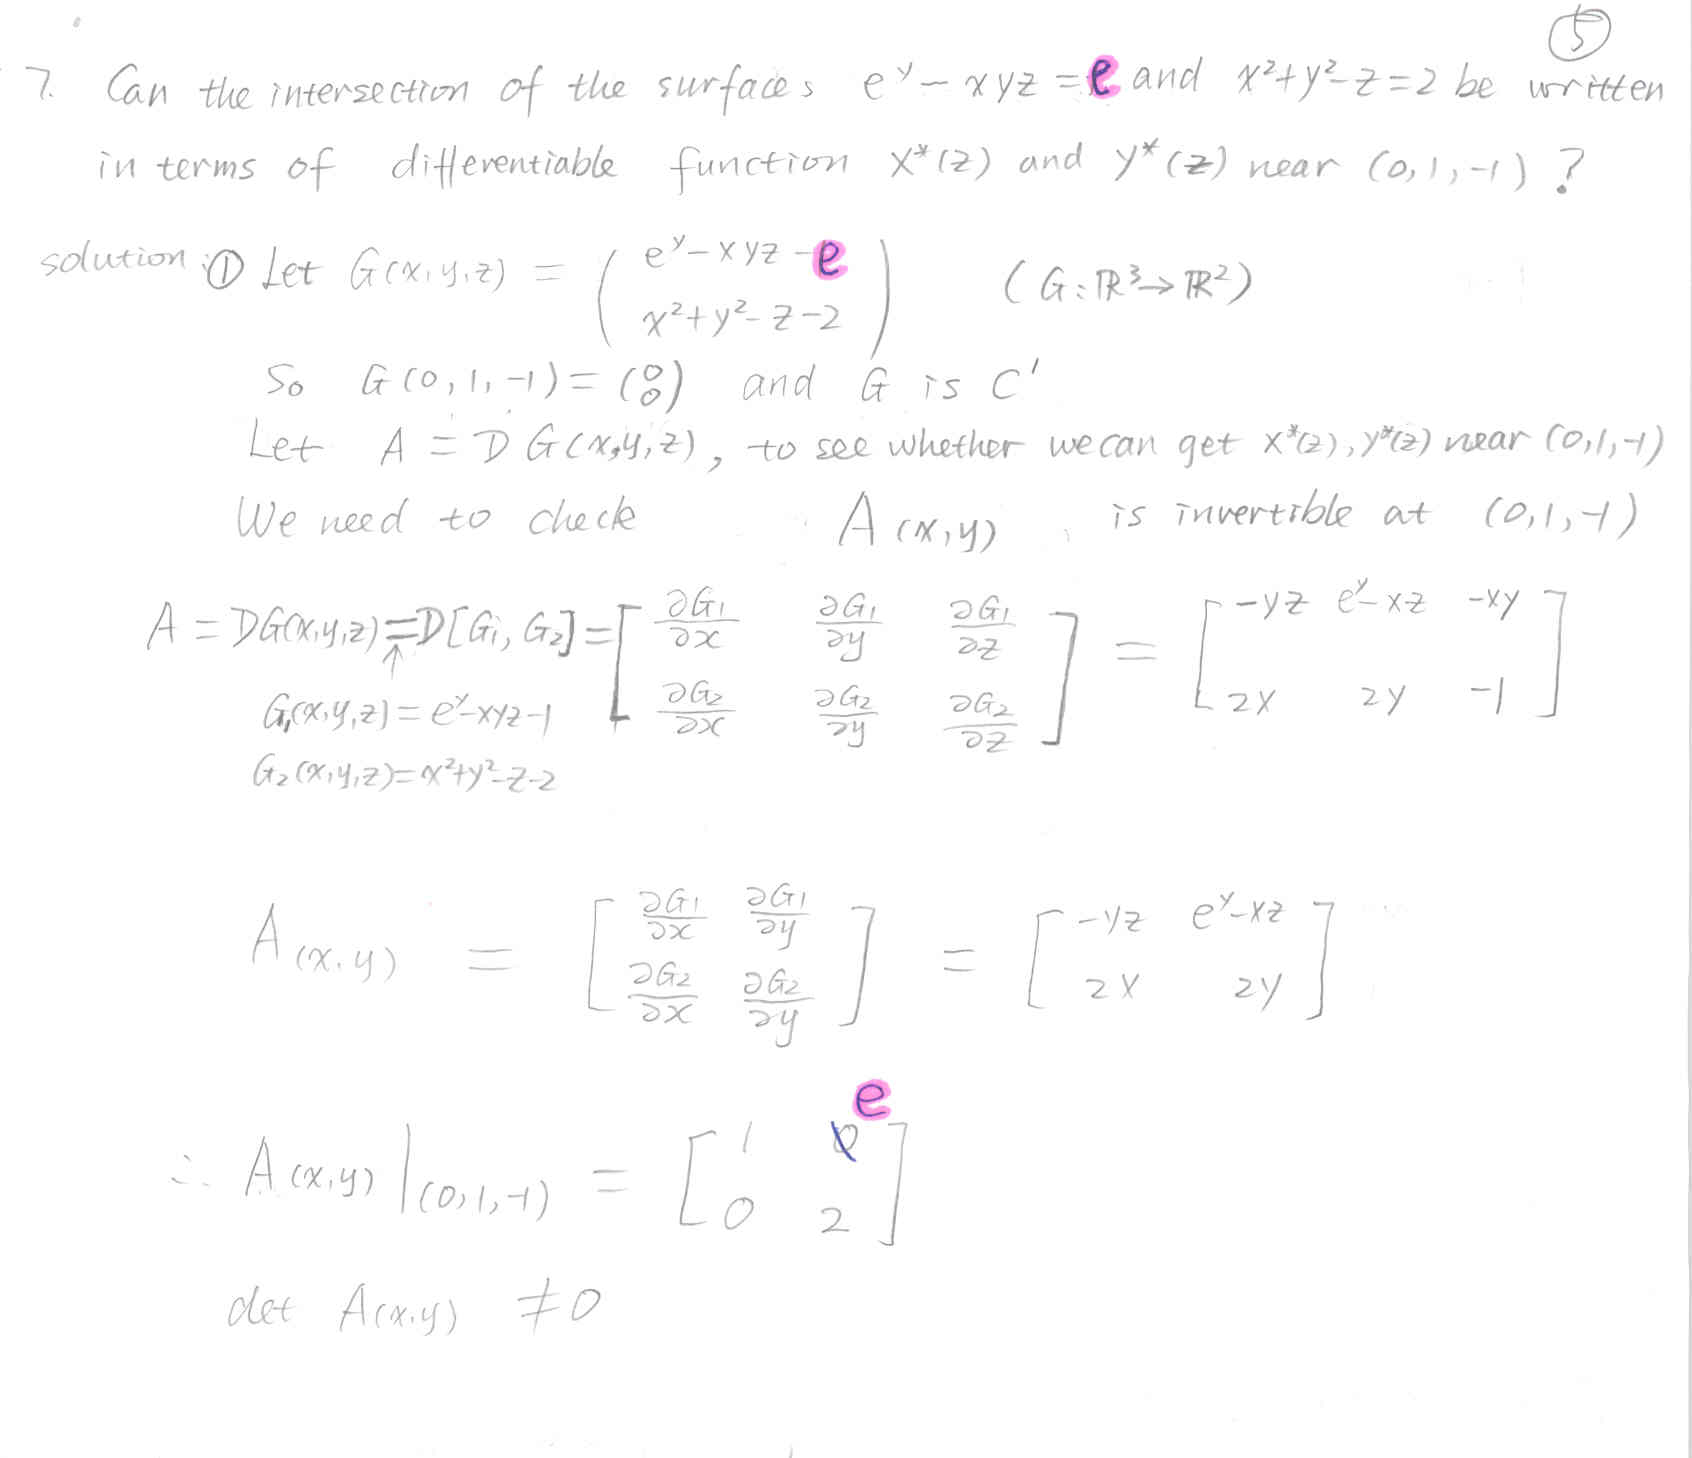 ⑤
7. Can the intersection of the surfaces e^y - xyz = e and x²+y²-z=2 be written
in terms of differentiable function x*(z) and y*(z) near (0,1,-1) ?
solution: ① Let G(x,y,z) = ( e^y - xyz - e ; x²+y²-z-2 ) (G: ℝ³→ℝ²)
So G(0,1,-1) = (0 ; 0) and G is C¹
Let A = DG(x,y,z), to see whether we can get x*(z), y*(z) near (0,1,-1)
We need to check A(x,y) is invertible at (0,1,-1)
A = DG(x,y,z) = D[G₁, G₂] = [ ∂G₁/∂x ∂G₁/∂y ∂G₁/∂z ; ∂G₂/∂x ∂G₂/∂y ∂G₂/∂z ] = [ -yz e^y-xz -xy ; 2x 2y -1 ]
↑
G₁(x,y,z) = e^y-xyz-1
G₂(x,y,z) = x²+y²-z-2
A(x,y) = [ ∂G₁/∂x ∂G₁/∂y ; ∂G₂/∂x ∂G₂/∂y ] = [ -yz e^y-xz ; 2x 2y ]
∴ A(x,y) |(0,1,-1) = [ 1 e ; 0 2 ]
det A(x,y) ≠ 0